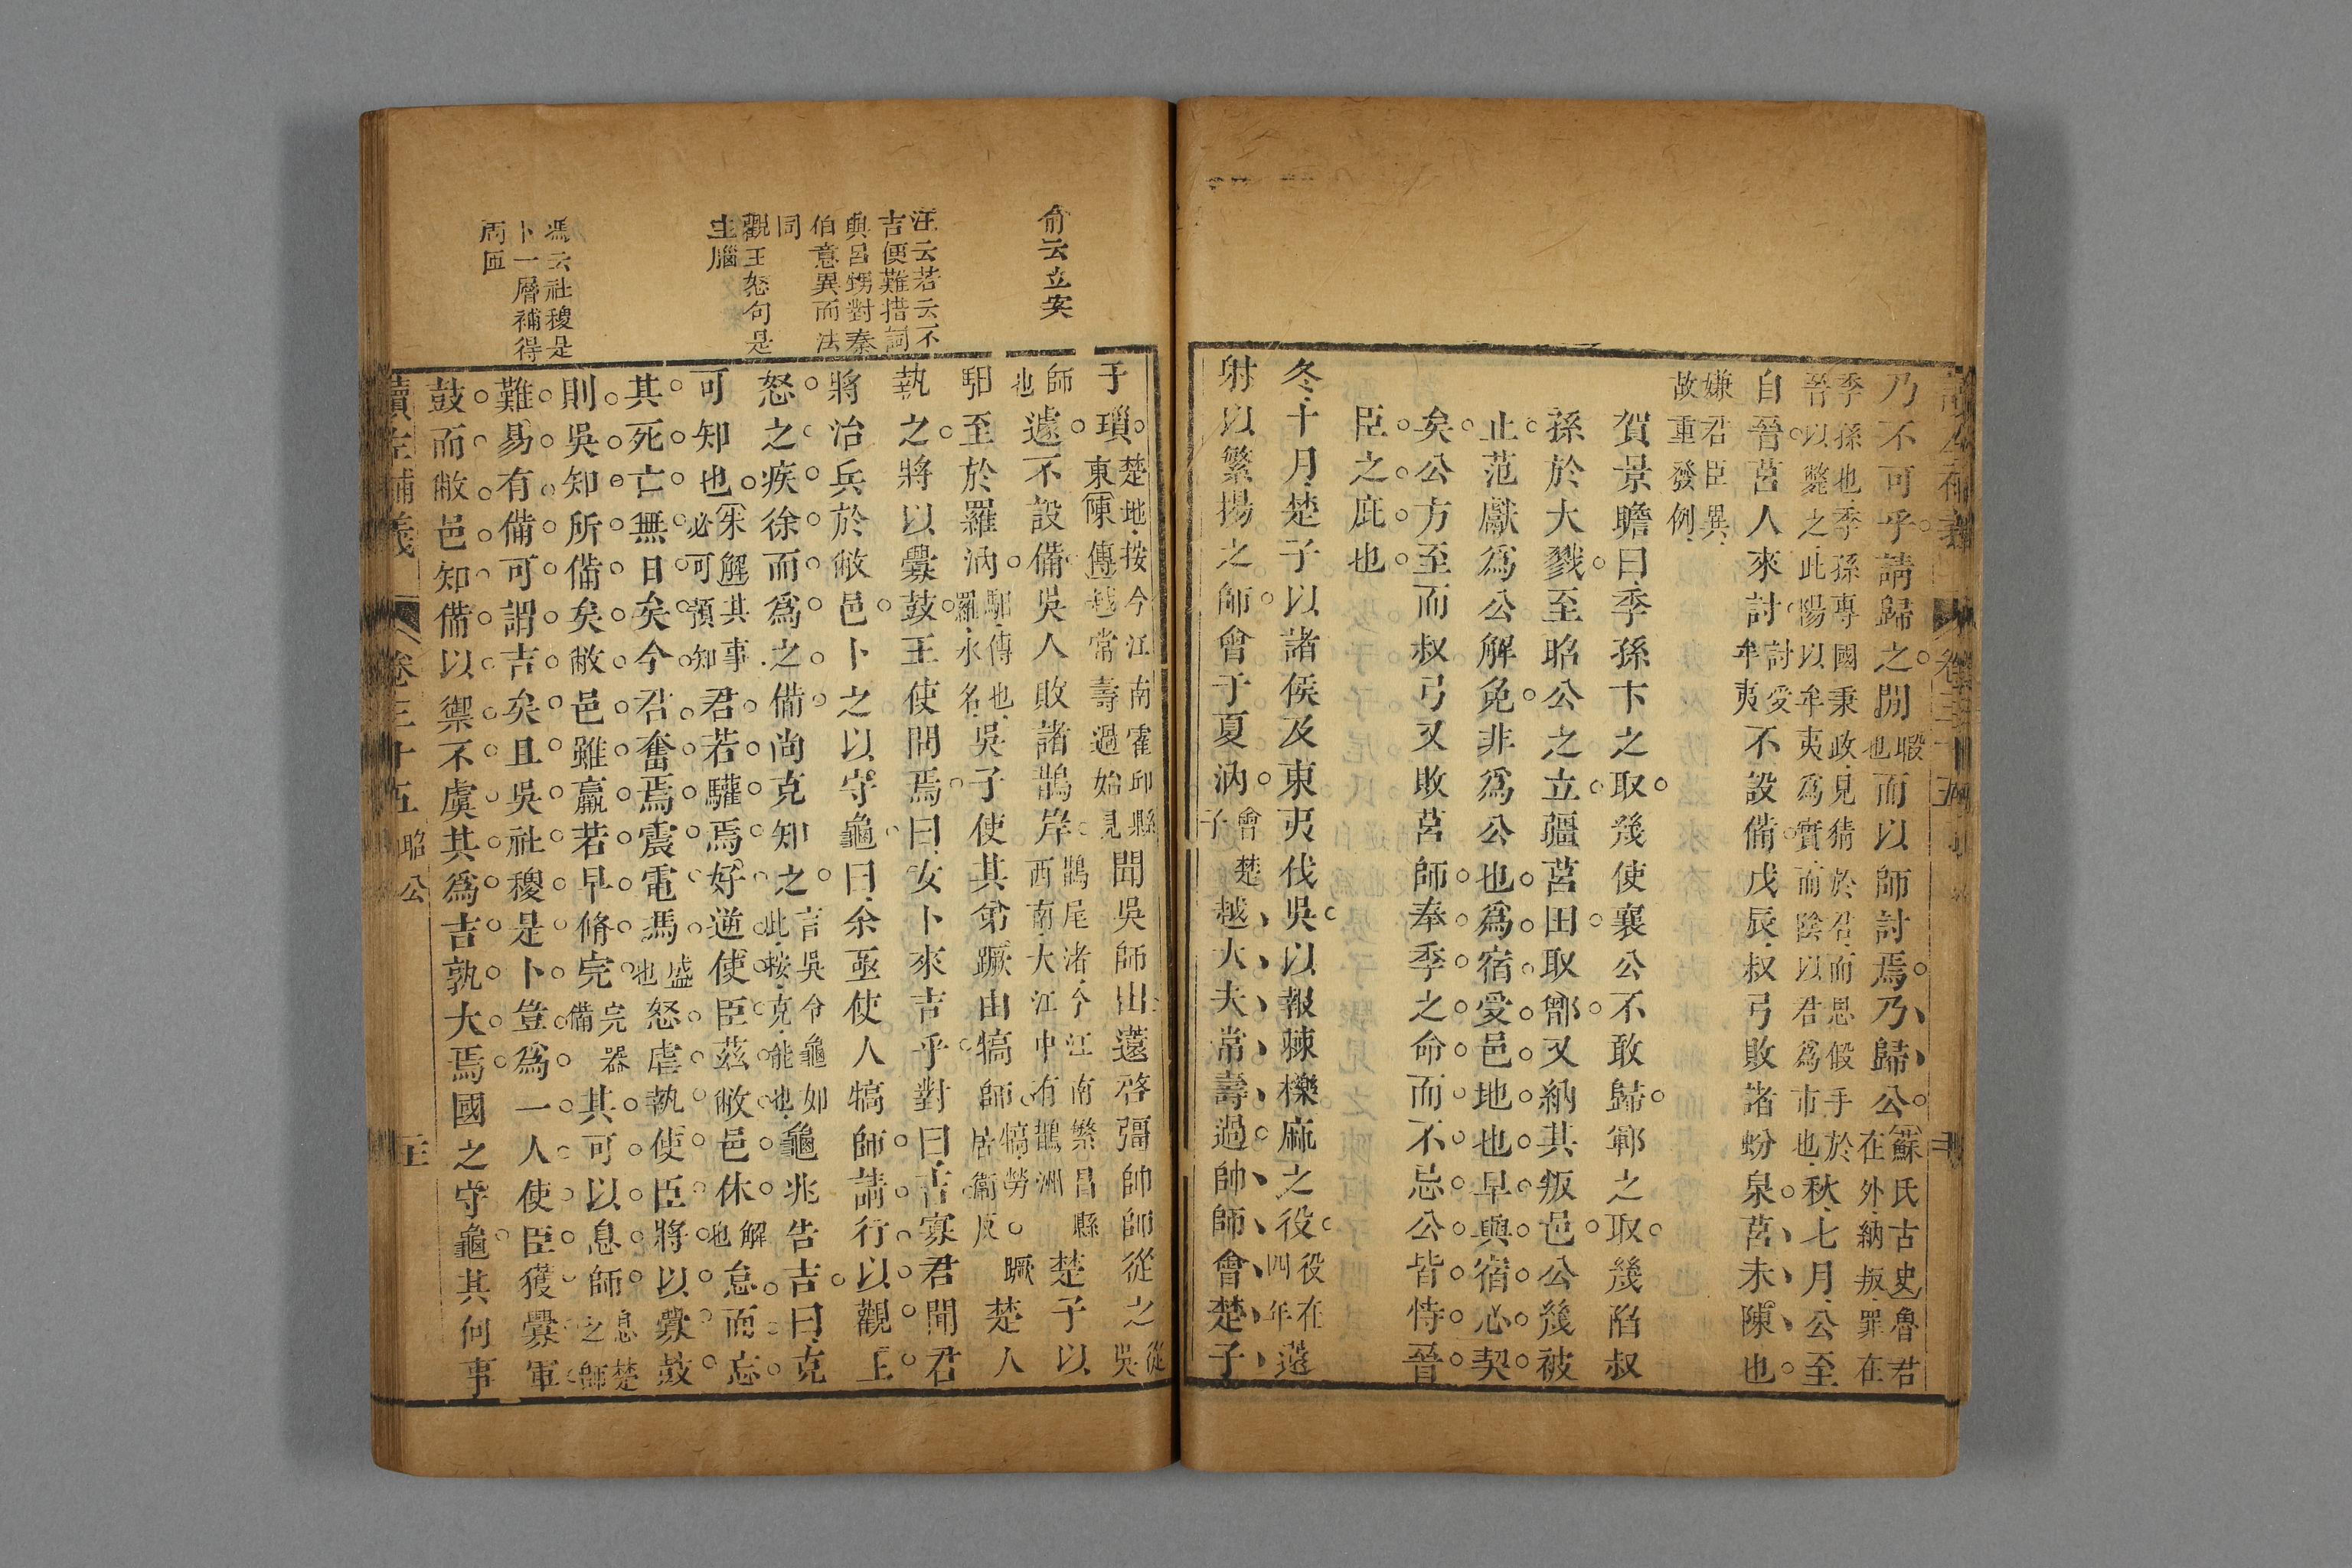 乃不可乎請歸之閒暇也而以師討焉乃歸公蘇氏古史魯君在外納叛罪在
季孫也季孫專國秉政見猜於君而思假手於晉以斃之此陽以牟夷爲實而陰以君爲市也秋七月公至
自晉莒人來討討受牟夷不設備戊辰叔弓敗諸蚡泉莒未陳也
嫌君臣異故重發例
賀景瞻曰季孫卞之取幾使襄公不敢歸鄆之取幾陷叔
孫於大戮至昭公之立疆莒田取鄫又納其叛邑公幾被
止范獻爲公解免非爲公也爲宿受邑地也早與宿心契
矣公方至而叔弓又敗莒師奉季之命而不忌公皆恃晉
臣之庇也
冬十月楚子以諸侯及東夷伐吳以報棘櫟麻之役役在四年薳
射以繁揚之師會于夏汭會楚子越大夫常壽過帥師會楚子
于瑣楚地按今江南霍邱縣東陳傳越常壽過始見聞吳師出薳啓彊帥師從之從吳
師也遽不設備吳人敗諸鵲岸鵲尾渚今江南繁昌縣西南大江中有鵲洲楚子以
馹至於羅汭馹傳也羅水名吳子使其弟蹶由犒師犒勞蹶居衞反楚人
執之將以釁鼓王使問焉曰女卜來吉乎對曰吉寡君聞君
將治兵於敝邑卜之以守龜曰余亟使人犒師請行以觀王
怒之疾徐而爲之備尚克知之言吳令龜如此按克能也龜兆告吉曰克
可知也朱解其事必可預知君若驩焉好逆使臣茲敝邑休解也怠而忘
其死亡無日矣今君奮焉震電馮盛也怒虐執使臣將以釁鼓
則吳知所備矣敝邑雖羸若早脩完完器備其可以息師息楚之師
難易有備可謂吉矣且吳社稷是卜豈爲一人使臣獲釁軍
鼓而敝邑知備以禦不虞其爲吉孰大焉國之守龜其何事
讀左補義
卷三十五
昭公
俞云立案
汪云若云不
吉便難措詞
與呂甥對秦
伯意異而法
同
觀王怒句是
主腦
馮云社稷是
卜一層補得
兩匝